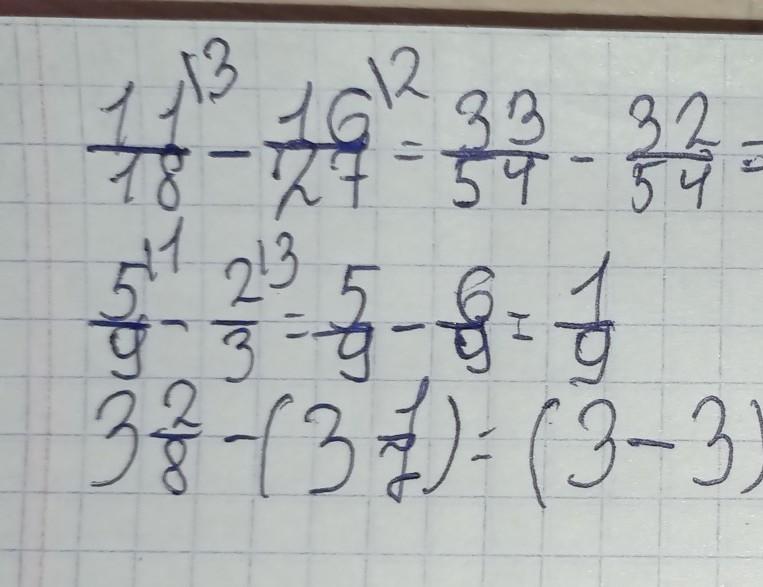 11\3/18 - 16\2/27 = 33/54 - 32/54 =
5\1/9 - 2\3/3 = 5/9 - 6/9 = 1/9
3 2/8 - (3 1/7) = (3 - 3)